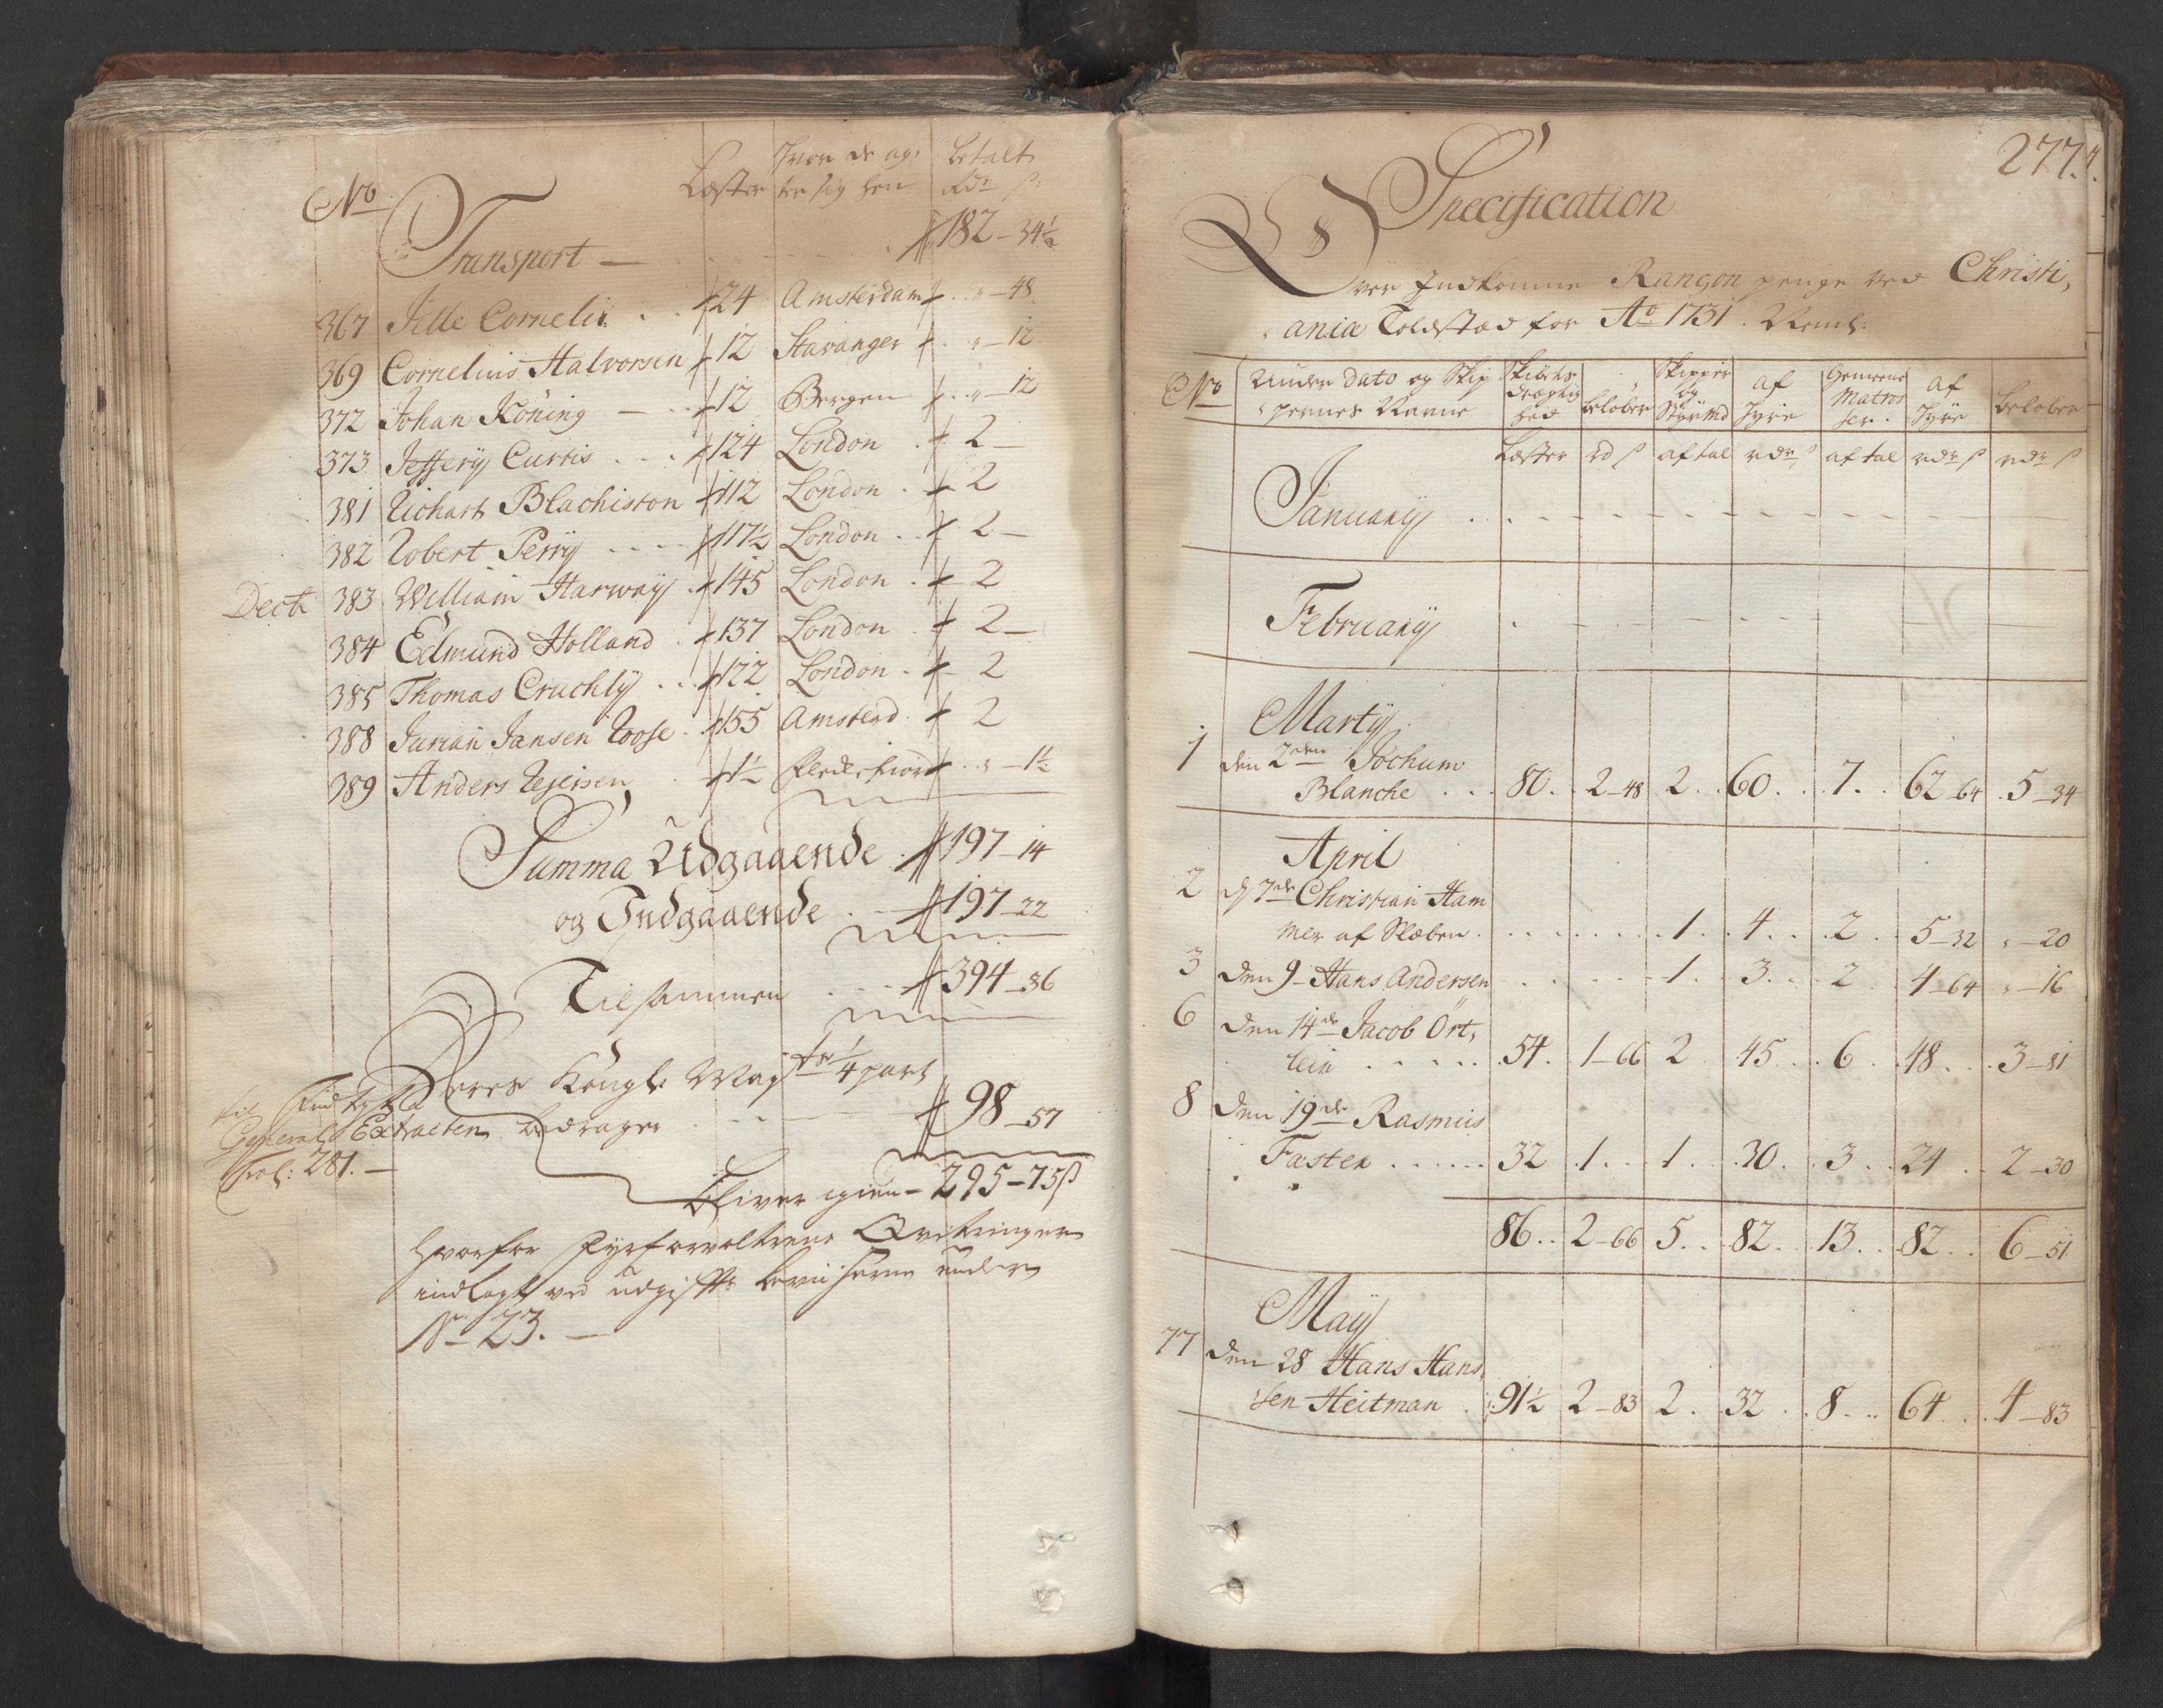 No Læster Hvor de ag, betalt
ter sig hen Rdr ß
Transport — 182 – 34½
367 Jelle Cornelis . . 24 Amsterdam . . „ – 48
369 Cornelius Halvorsen 12 Stavanger . „ – 12
372 Johan Köning – . . 12 Bergen . . „ – 12
373 Jeffery Curtis . . . 124 London . 2 –
381 Richart Blachiston 112 London . 2
382 Robert Perry . . . . 117½ London . . 2 –
Dec: 383 William Harway . 145 London . 2
384 Edmund Holland . 137 London . 2 –
385 Thomas Cruchly . . 122 London . 2
388 Jurian Jansen Roose . 155 Amsterd . 2
389 Anders Rejersen . 1½ . . „ – 1½
Summa Udgaaende . 197 – 14
og Indgaaende . 197 – 22
Tilsammen . . . 394 – 36
Deres Kongl. May for ¼ part
bedrager . . 98 – 57
General Extracten
Fol: 281. –
bliver igien – 295 – 75 ß
hvorfor Fyrforvalterens Qvitteringer
indlagt ved udgifts beviserne under
No 23. –
277.
Specification
Over Indkomne Rançon penge ved Christi,
ania Toldsted for Ao 1731. Neml:
No Under dato og Skip Skibets Skipper af Gemeene af
pernes Navne Drægtig og Hyre Matros Hyre beløber
hed beløber Styrmd ser.
Læster rd ß aftal rdr ß aftal rdr ß rdr ß
January . . – – – – – – –
February . – – – – – –
Marty
1 den 2den Jochum
Blanche . . . 80 . . 2 – 48 2 . . 60 . . . 7 . . 62 – 64 . 5 – 34
April
2 d 7de Christian Ham
mer af Sleben . . . . . . . . 1 . . 4 . . . 2 . . 5 – 32 „ – 20
3 den 9 – Hans Andersen . . . . . 1 . . 3 . . . 2 . . 4 – 64 „ – 16
6 den 14de Jacob Ört,
lein . . . . . 54 . 1 – 66 2 . 45 . . . 6 . . 48 . . . 3 – 81
8 den 19de Rasmus
Faster . . . . . . 32 . 1 . . . 1 . . 30 . . 3 . . 24 . . 2 – 30
86 . . 2 – 66 5 . . 82 . . 13 . . 82 . . 6 – 51
May
77 den 28 Hans Hans,
sen Heitman . 91½ 2 – 83 2 . . 32 . . 8 . . . 64 . . . 4 – 83